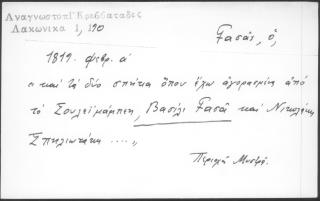 Ἀναγνωστοπ. Κρεββαταδες
Λακωνικα 1, 190
Γασᾶς, ὁ,
1819. φεβρ. α
« καὶ τὰ δύο σπήτια ὅπου ἔχω ἀγορασμένα ἀπὸ
τὸ Σουλεϊμάμπεη, Βασίλι Γασᾶ καὶ Νικολάκη
Σπηλιωτάκη .... »
Περιοχὴ Μυστρᾶ.